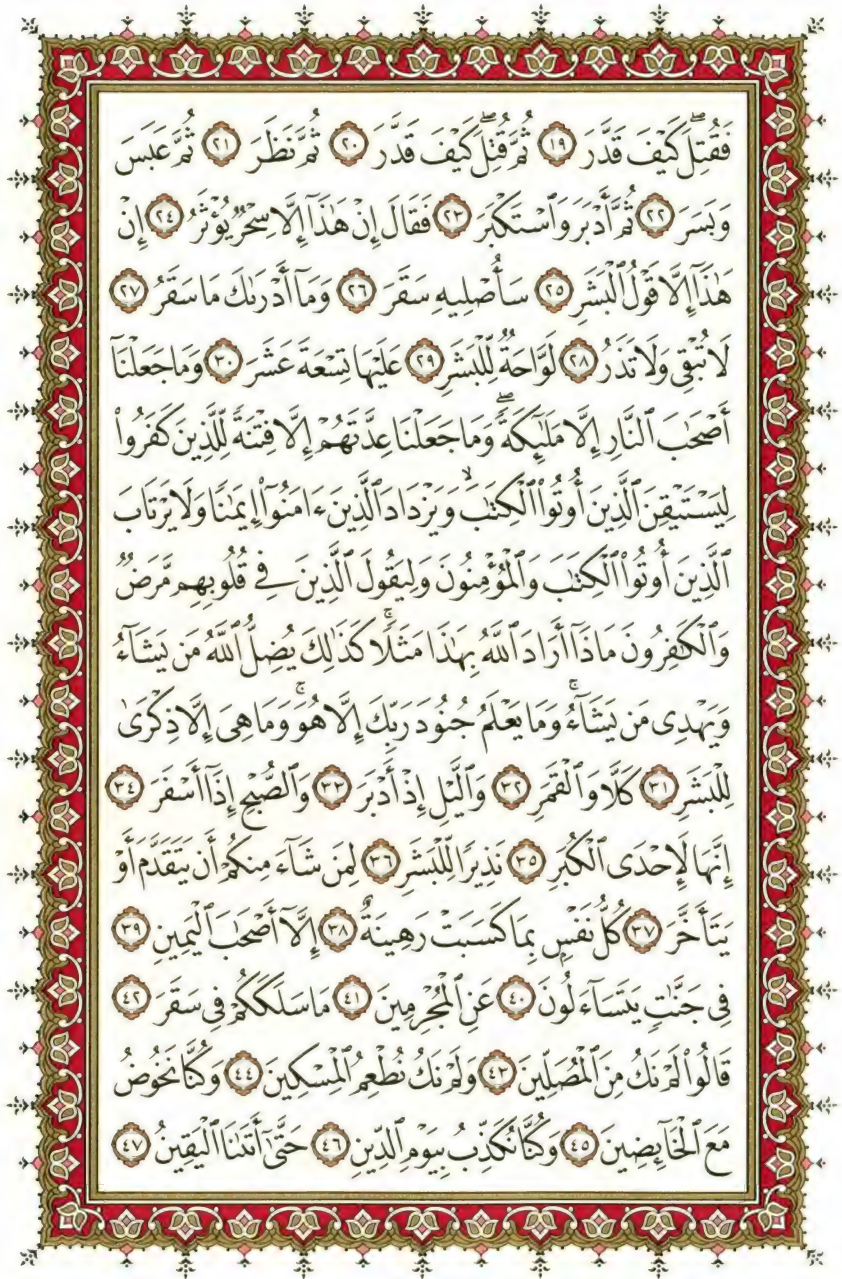 فَقُتِلَ كَيْفَ قَدَّرَ ١٩ ثُمَّ قُتِلَ كَيْفَ قَدَّرَ ٢٠ ثُمَّ نَظَرَ ٢١ ثُمَّ عَبَسَ
وَبَسَرَ ٢٢ ثُمَّ أَدْبَرَ وَٱسْتَكْبَرَ ٢٣ فَقَالَ إِنْ هَٰذَآ إِلَّا سِحْرٌ يُؤْثَرُ ٢٤ إِنْ
هَٰذَآ إِلَّا قَوْلُ ٱلْبَشَرِ ٢٥ سَأُصْلِيهِ سَقَرَ ٢٦ وَمَآ أَدْرَىٰكَ مَا سَقَرُ ٢٧
لَا تُبْقِى وَلَا تَذَرُ ٢٨ لَوَّاحَةٌ لِّلْبَشَرِ ٢٩ عَلَيْهَا تِسْعَةَ عَشَرَ ٣٠ وَمَا جَعَلْنَآ
أَصْحَٰبَ ٱلنَّارِ إِلَّا مَلَٰٓئِكَةً ۖ وَمَا جَعَلْنَا عِدَّتَهُمْ إِلَّا فِتْنَةً لِّلَّذِينَ كَفَرُوا۟
لِيَسْتَيْقِنَ ٱلَّذِينَ أُوتُوا۟ ٱلْكِتَٰبَ وَيَزْدَادَ ٱلَّذِينَ ءَامَنُوٓا۟ إِيمَٰنًا ۙ وَلَا يَرْتَابَ
ٱلَّذِينَ أُوتُوا۟ ٱلْكِتَٰبَ وَٱلْمُؤْمِنُونَ وَلِيَقُولَ ٱلَّذِينَ فِى قُلُوبِهِم مَّرَضٌ
وَٱلْكَٰفِرُونَ مَاذَآ أَرَادَ ٱللَّهُ بِهَٰذَا مَثَلًا ۚ كَذَٰلِكَ يُضِلُّ ٱللَّهُ مَن يَشَآءُ
وَيَهْدِى مَن يَشَآءُ ۚ وَمَا يَعْلَمُ جُنُودَ رَبِّكَ إِلَّا هُوَ ۚ وَمَا هِىَ إِلَّا ذِكْرَىٰ
لِلْبَشَرِ ٣١ كَلَّا وَٱلْقَمَرِ ٣٢ وَٱلَّيْلِ إِذْ أَدْبَرَ ٣٣ وَٱلصُّبْحِ إِذَآ أَسْفَرَ ٣٤
إِنَّهَا لَإِحْدَى ٱلْكُبَرِ ٣٥ نَذِيرًا لِّلْبَشَرِ ٣٦ لِمَن شَآءَ مِنكُمْ أَن يَتَقَدَّمَ أَوْ
يَتَأَخَّرَ ٣٧ كُلُّ نَفْسٍۭ بِمَا كَسَبَتْ رَهِينَةٌ ٣٨ إِلَّآ أَصْحَٰبَ ٱلْيَمِينِ ٣٩
فِى جَنَّٰتٍ يَتَسَآءَلُونَ ٤٠ عَنِ ٱلْمُجْرِمِينَ ٤١ مَا سَلَكَكُمْ فِى سَقَرَ ٤٢
قَالُوا۟ لَمْ نَكُ مِنَ ٱلْمُصَلِّينَ ٤٣ وَلَمْ نَكُ نُطْعِمُ ٱلْمِسْكِينَ ٤٤ وَكُنَّا نَخُوضُ
مَعَ ٱلْخَآئِضِينَ ٤٥ وَكُنَّا نُكَذِّبُ بِيَوْمِ ٱلدِّينِ ٤٦ حَتَّىٰٓ أَتَىٰنَا ٱلْيَقِينُ ٤٧